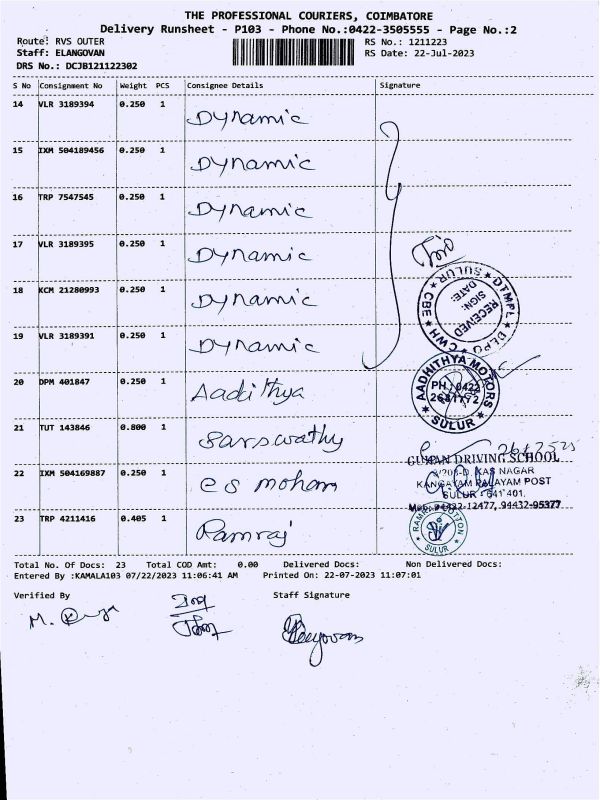 THE PROFESSIONAL COURIERS, COIMBATORE
Delivery Runsheet - P103 - Phone No.:0422-3505555 - Page No.:2
Route: RVS OUTER RS No.: 1211223
Staff: ELANGOVAN RS Date: 22-Jul-2023
DRS No.: DCJB121122302
S No Consignment No Weight PCS Consignee Details Signature
14 VLR 3189394 0.250 1 Dynamic
15 IXM 504189456 0.250 1 Dynamic
16 TRP 7547545 0.250 1 Dynamic
17 VLR 3189395 0.250 1 Dynamic
18 KCM 21280993 0.250 1 Dynamic
19 VLR 3189391 0.250 1 Dynamic
DTMPL DEPO CWH CBE SULUR
RECEIVED
SIGN:
DATE:
20 DPM 401847 0.250 1 Aadithya
AADHITHYA MOTORS
PH: 0422
SULUR
21 TUT 143846 0.800 1 Sarswathy
22 IXM 504169887 0.250 1 es mohan
DRIVING SCHOOL
NAGAR
KANGAYAM PALAYAM POST
SULUR - 641 401.
94432-95377
23 TRP 4211416 0.405 1 Ramraj
RAMRAJ COTTON
SULUR
Total No. Of Docs: 23 Total COD Amt: 0.00 Delivered Docs: Non Delivered Docs:
Entered By :KAMALA103 07/22/2023 11:06:41 AM Printed On: 22-07-2023 11:07:01
Verified By Staff Signature